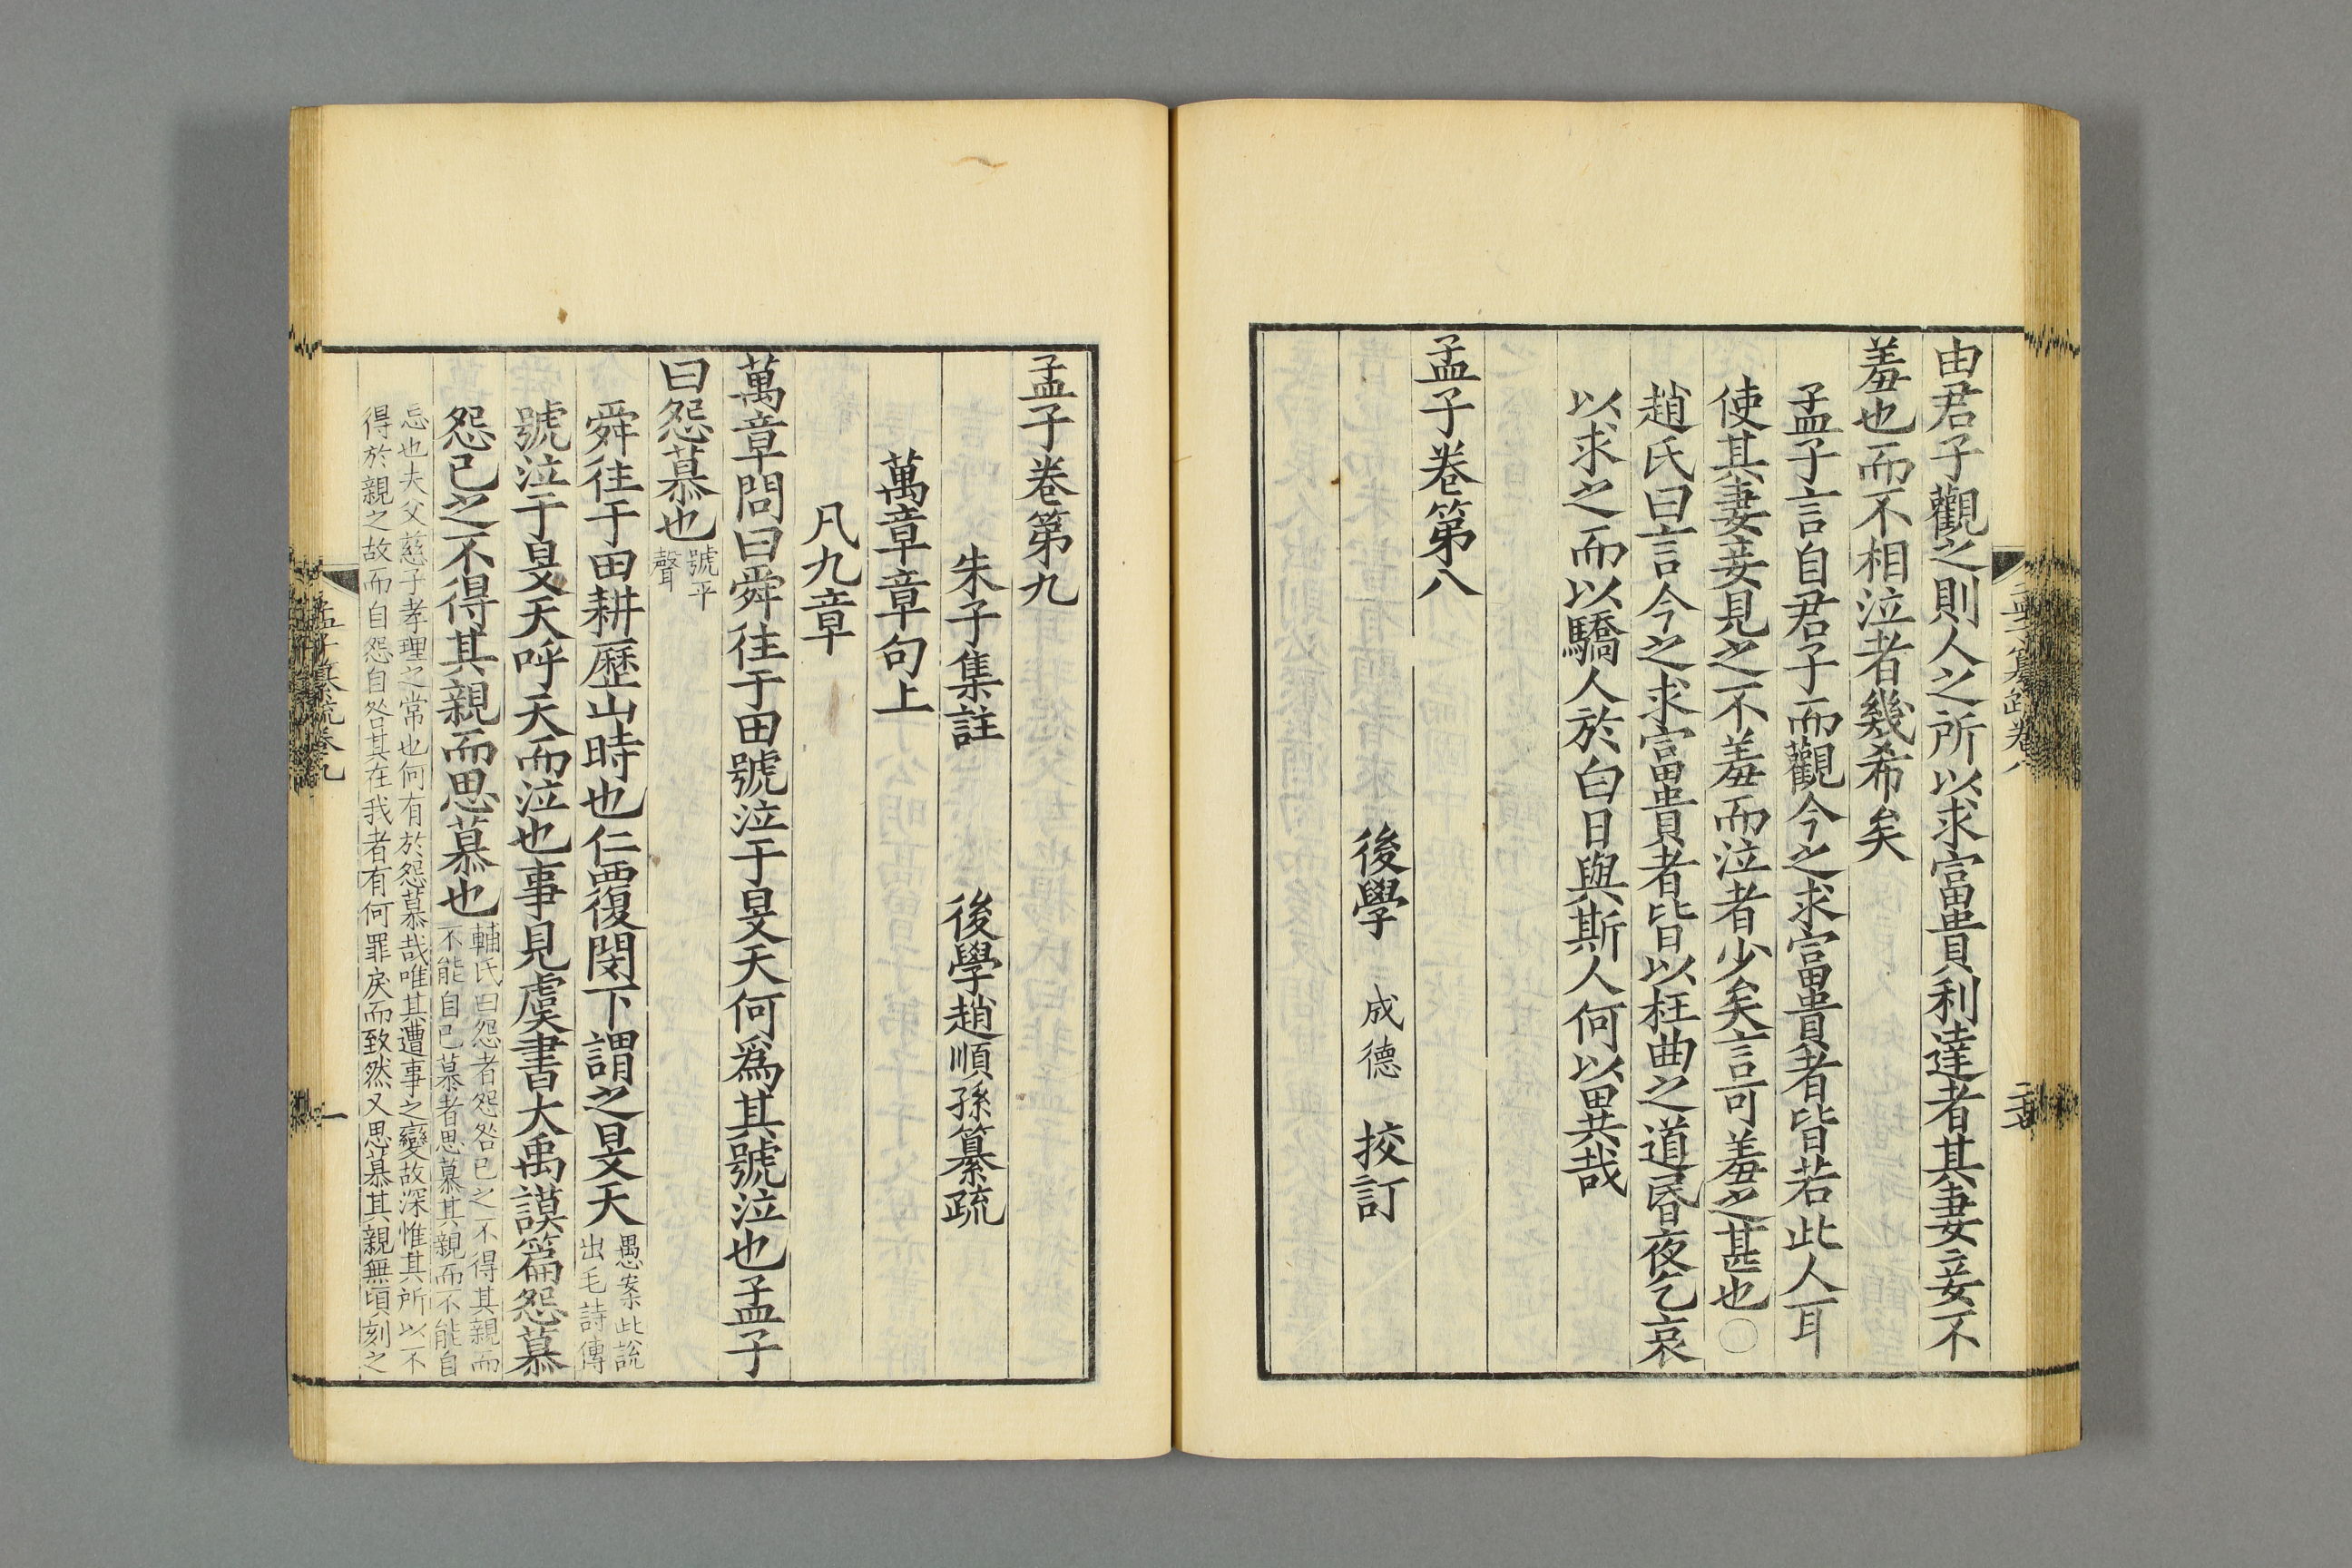 由君子觀之則人之所以求富貴利達者其妻妾不
羞也而不相泣者幾希矣
孟子言自君子而觀今之求富貴者皆若此人耳
使其妻妾見之不羞而泣者少矣言可羞之甚也○
趙氏曰言今之求富貴者皆以枉曲之道昬夜乞哀
以求之而以驕人於白日與斯人何以異哉
孟子卷第八
後學 成德 挍訂
孟子卷第九
朱子集註 後學趙順孫纂疏
萬章章句上
凡九章
萬章問曰舜往于田號泣于旻天何爲其號泣也孟子
曰怨慕也
號平
聲
舜往于田耕歷山時也仁覆閔下謂之旻天
愚案此說
出毛詩傳
號泣于旻天呼天而泣也事見虞書大禹謨篇怨慕
怨己之不得其親而思慕也
輔氏曰怨者怨咎己之不得其親而
不能自已慕者思慕其親而不能自
忘也夫父慈子孝理之常也何有於怨慕哉唯其遭事之變故深惟其所以不
得於親之故而自怨自咎其在我者有何罪戾而致然又思慕其親無頃刻之
孟子纂疏卷九
一